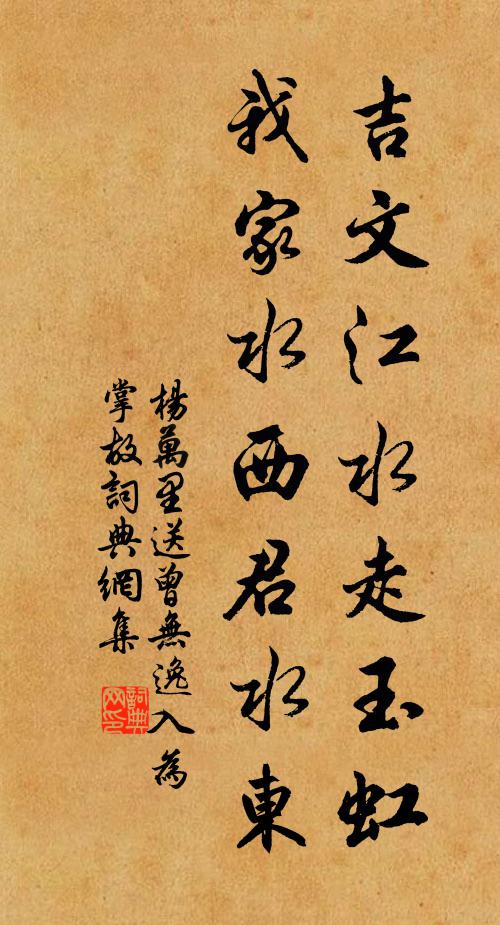 吉文江水走玉虹
我家水西君水東
楊萬里送曾無逸入為
掌故詞典網集
詞典網印